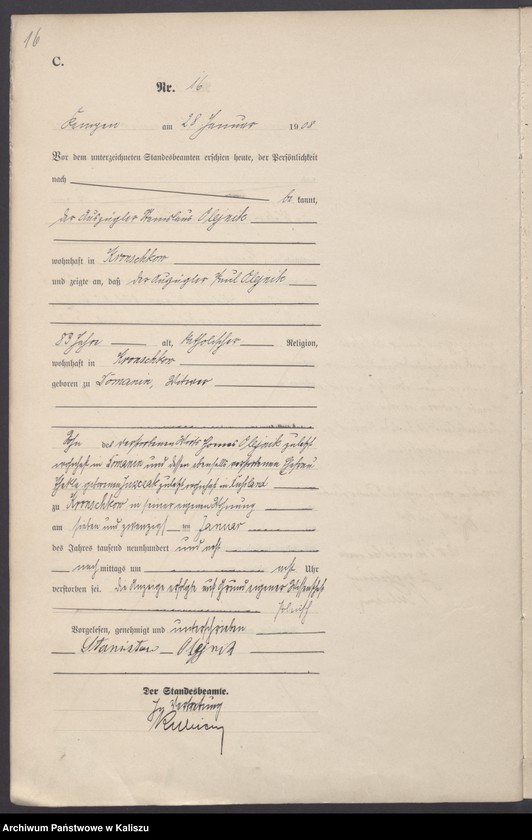 16
C.
Nr. 16
Kempen am 28 Januar 1908
Vor dem unterzeichneten Standesbeamten erschien heute, der Persönlichkeit
nach
be kannt,
der Auszügler Olejnik
wohnhaft in
und zeigte an, daß der Auszügler Paul Olejnik
83 Jahre alt, katholischer Religion,
wohnhaft in
geboren zu Domanin, Witwer
Sohn des verstorbenen Wirts Thomas Olejnik zuletzt
wohnhaft in Domanin und dessen ebenfalls verstorbenen Ehefrau
Thekla geborenen zuletzt wohnhaft in
zu in seiner eigenen Wohnung
am sieben und zwanzigsten Januar
des Jahres tausend neunhundert und acht
nach mittags um acht Uhr
verstorben sei. Die Anzeige erfolgte auf Grund eigener Wissenschaft
Vorgelesen, genehmigt und unterschrieben
Stanislaw Olejnik
Der Standesbeamte.
In Vertretung
Archiwum Państwowe w Kaliszu